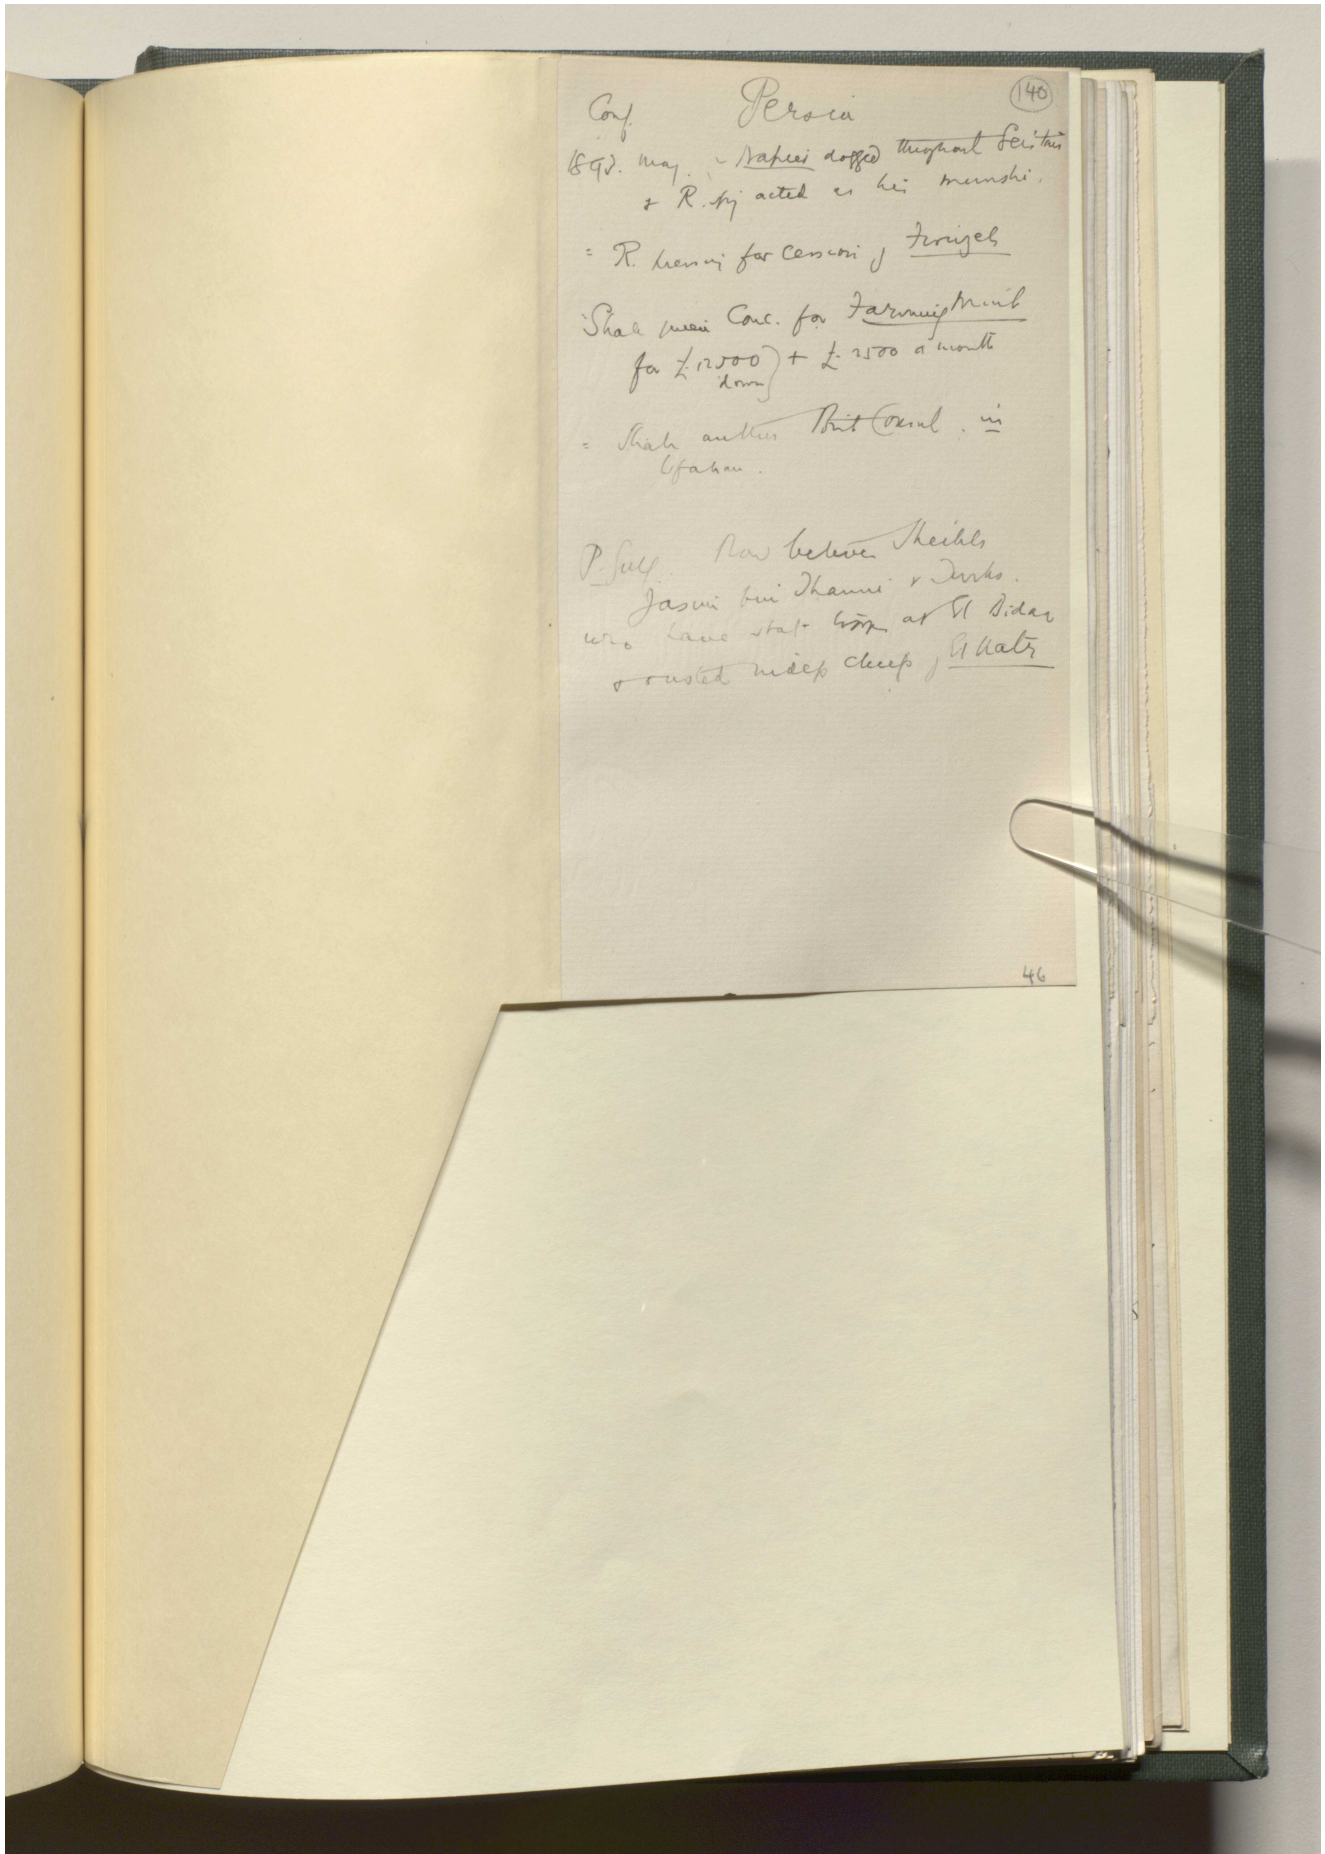 140
Conf. Persia
1893. May. Napier dogged throughout Seistan
& R. spy acted as his munshi.
= R. pressing for cession of Firuzeh
Shah given Conc. for Farming Mint
for £12500 down + £2500 a month
= Shah Brit Consul. in
Isfahan.
P. Gulf. Row between Sheikh
Jasim bin Thanni & Turks.
who have at El Bidaa
& ousted indep chief of El Katr
46